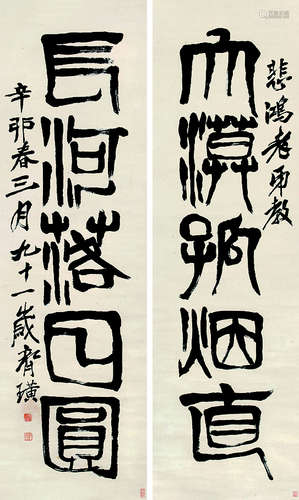 悲鸿老弟教
大漠孤烟直
長河落日圓
辛卯春三月九十一歲齊璜